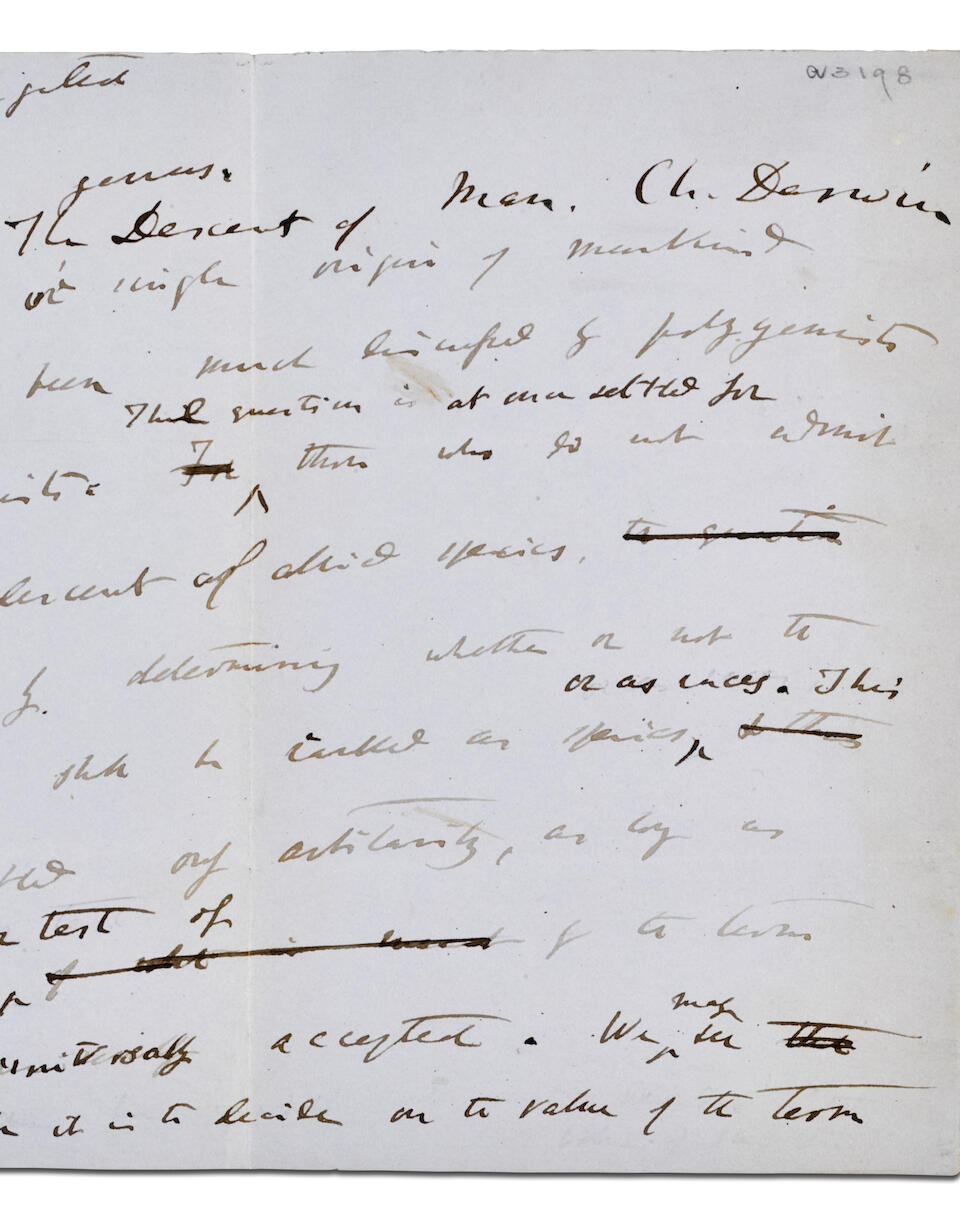 N3198
genus.
The Descent of Man. Ch. Darwin
or single origin of mankind
been much discussed by polygenists
This question is at once settled for
ists. For those who do not admit
descent of allied species, the question
by determining whether or not the
or as races. This
shd be ranked as species, & this
only arbitrarily, as long as
test of
of what is meant by the term
universally accepted. We may see the
it is to decide on the value of the term